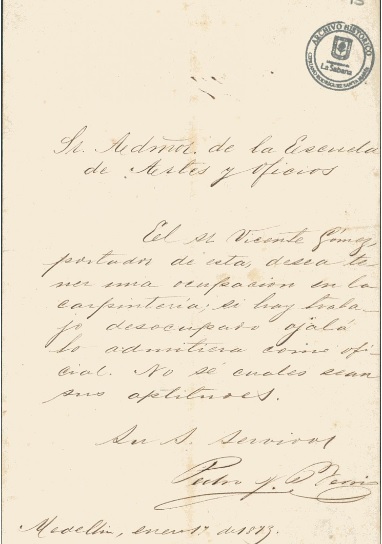 ARCHIVO HISTORICO
La Sabana
Sr. Admor. de la Escuela
de Artes y Oficios
El sr Vicente Gómez,
portador de esta, desea te
ner una ocupacion en la
carpintería; si hay traba-
jo desocupado ojalá
lo admitiera como ofi-
cial. No sé cuales sean
sus aptitudes.
Su S. Servidor
Pedro
Medellin, enero 17 de 1873.